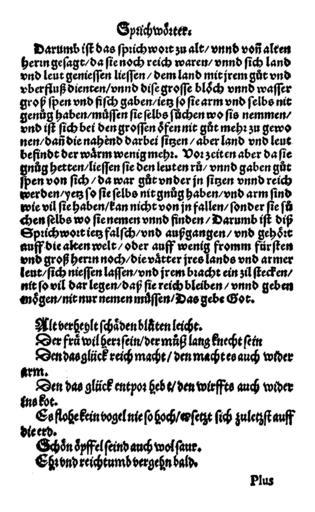 Sprichwörter.
Darumb ist das sprichwort zů alt/ vnnd voñ alten
herin gesagt/ da sie noch reich waren/ vnnd sich land
vnd leut geniessen liessen/ dem land mit jrem gůt vnd
vberfluß dienten/ vnnd dise grosse blöch vnnd wasser
groß spen vnd fisch gaben/ ietz so sie arm vnd selbs nit
genůg haben/ müssen sie selbs sůchen wo sis nemmen/
vnd ist sich bei den grossen öfen nit gůt mehr zů gewo
nen/ dañ die nahend darbei sitzen/ aber land vnd leut
befindt der wärm wenig mehr. Vor zeiten aber da sie
gnůg hetten/ liessen sie den leuten rů/ vnnd gaben gůt
spen von sich/ da war gůt vnder jn sitzen vnnd reich
werden/ yetz so sie selbs nit gnůg haben/ vnd arm sind
wie vil sie haben/ kan nicht von jn fallen/ sonder sie sů
chen selbs wo sie nemen vnnd finden/ Darumb ist diß
Sprichwort ietz falsch/ vnd außgangen/ vnd gehört
auff die alten welt/ oder auff wenig fromm fürsten
vnd groß herin noch/ die vätter jres lands vnd armer
leut/ sich niessen lassen/ vnd jrem bracht ein zil stecken/
nit so vil dar legen/ daß sie reich bleiben/ vnnd geben
mögen/ nit nur nemen müssen/ Das gebe Got.
Alt verheylt schäden blůten leicht.
Der frů wil herr sein/ der můß lang knecht sein
Den das glück reich macht/ den macht es auch wider
arm.
Den das glück entpor hebt/ den wirffts auch wider
ins kot.
Es flohe kein vogel nie so hoch/ er setzt sich zuletzst auff
die erd.
Schön öpffel seind auch wol saur.
Ehr vnd reichtumb vergehn bald.
Plus